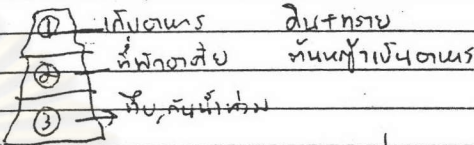 ① เก็บอาหาร ดิน+ทราย
② ที่พักอาศัย ต้นหญ้าเป็นอาหาร
③ ทึบ,กันน้ำท่วม